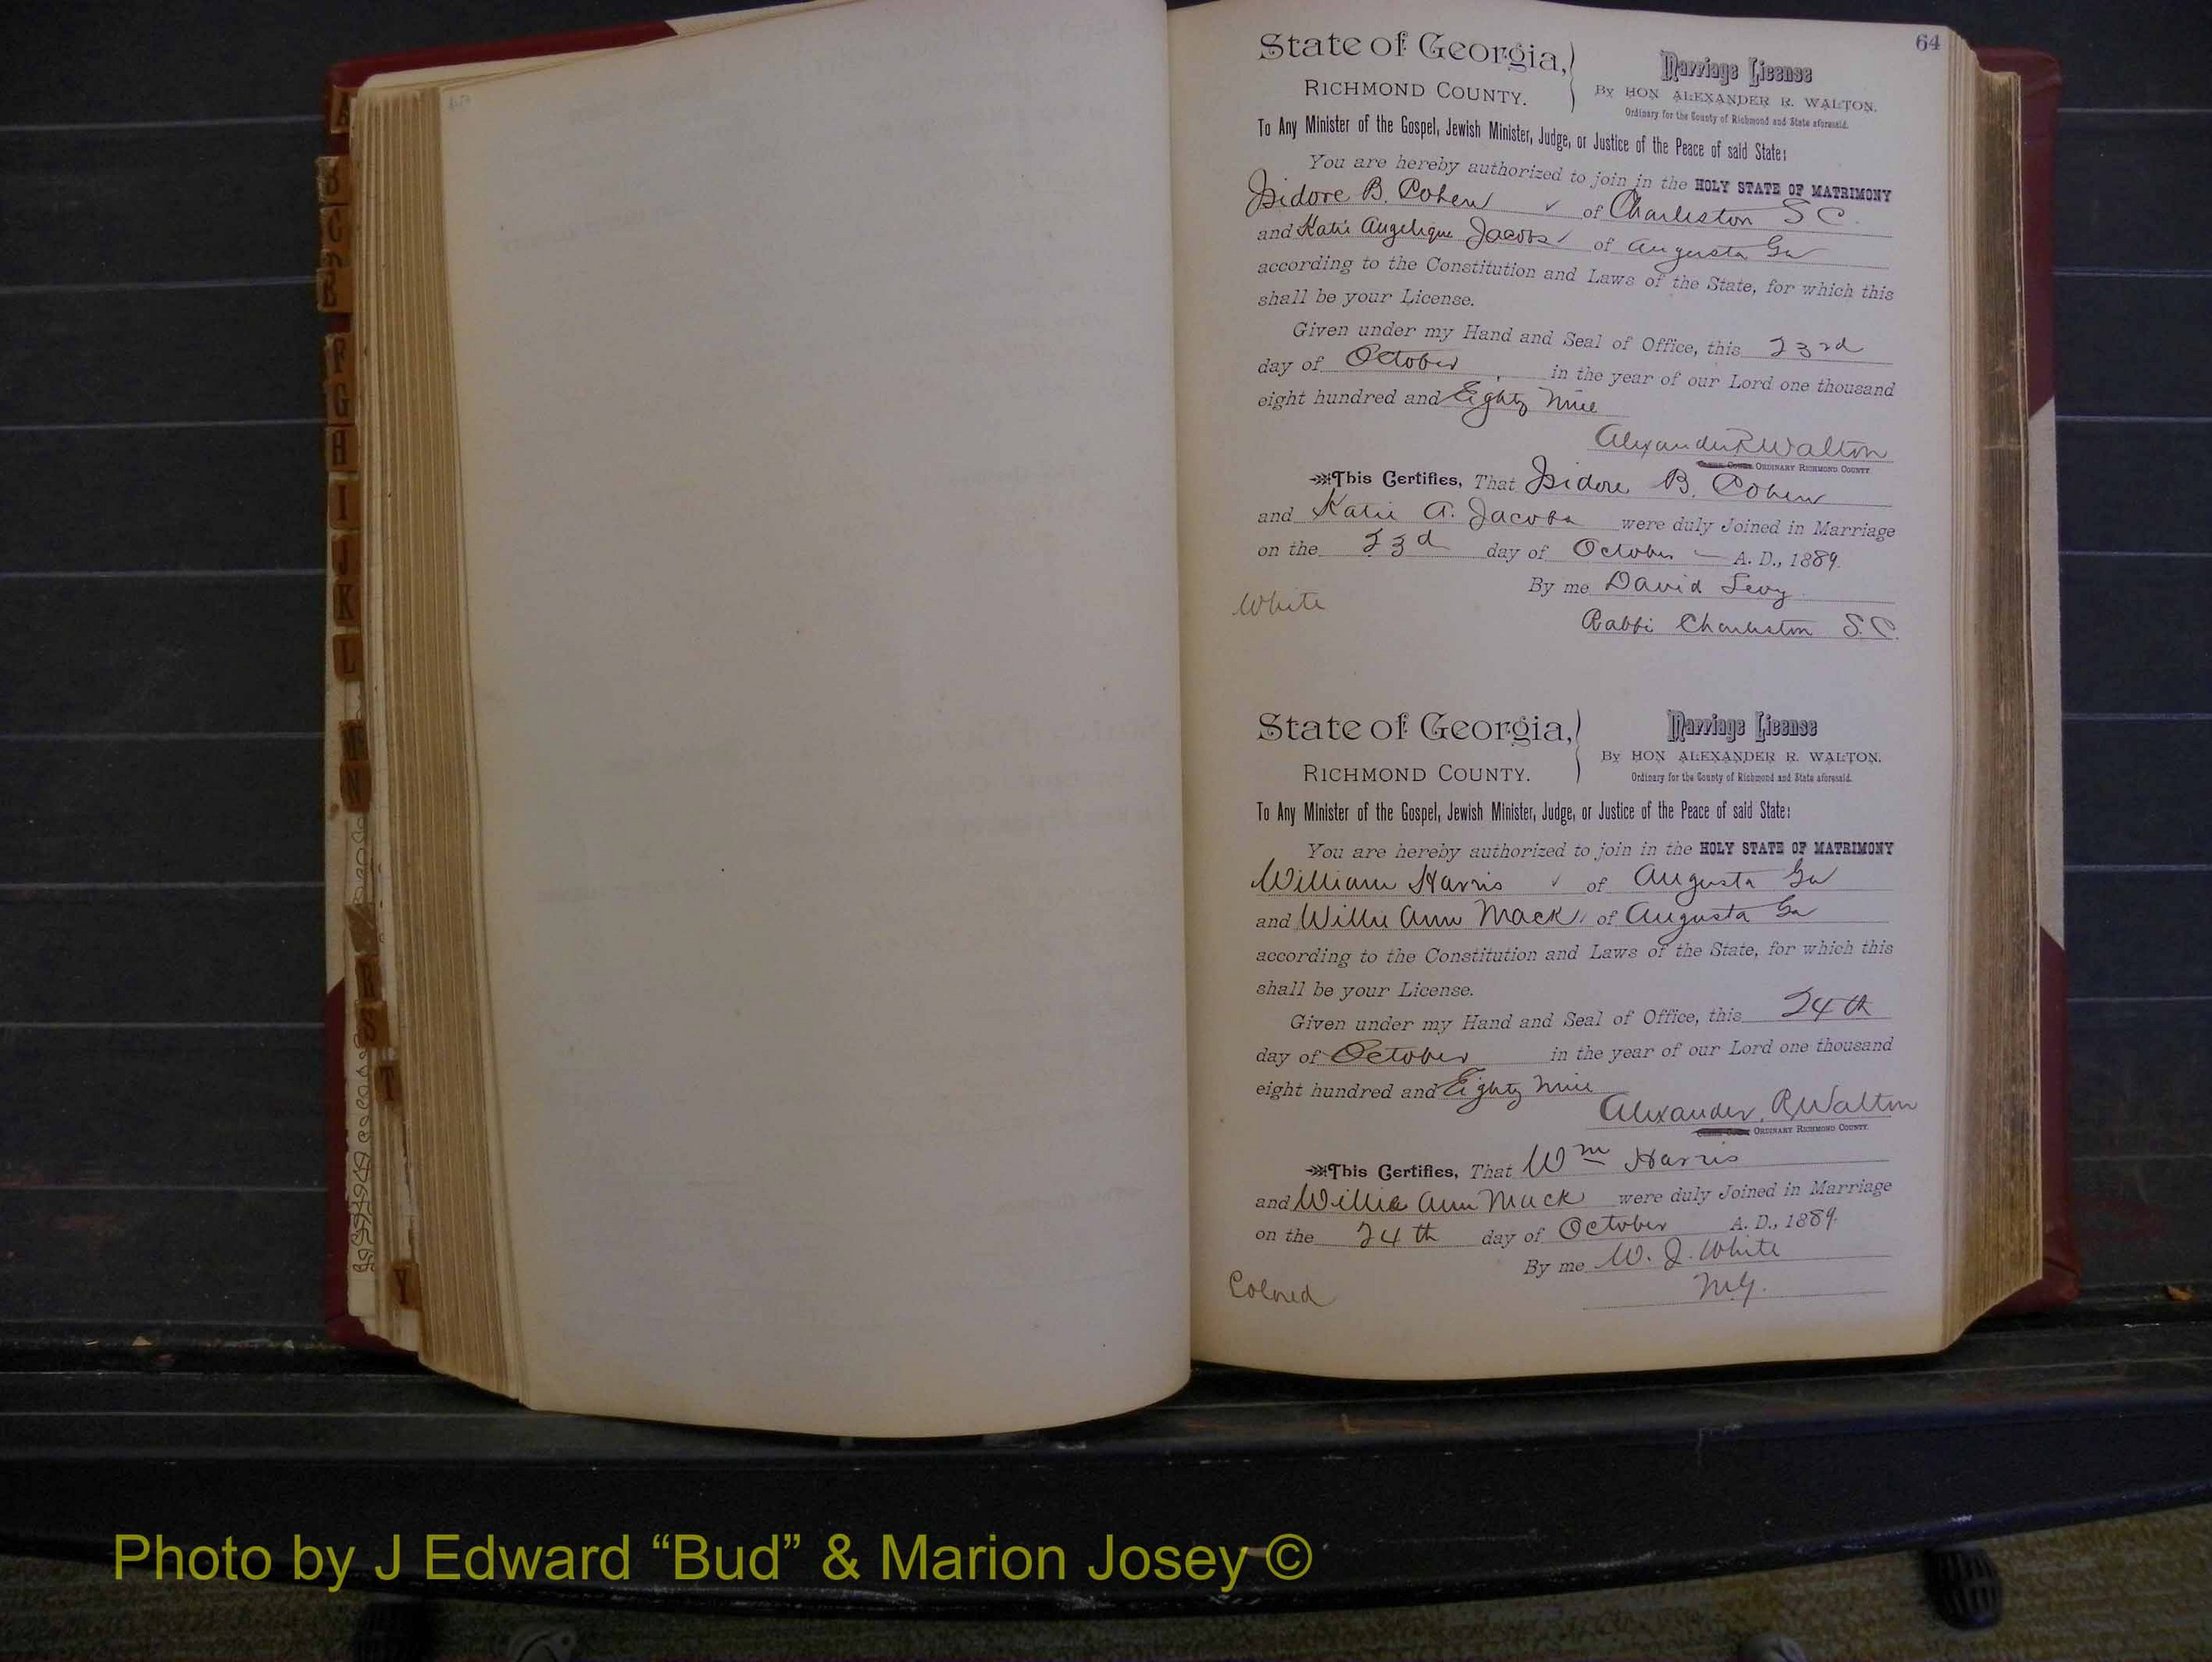 64
State of Georgia,
RICHMOND COUNTY.
Marriage License
By HON ALEXANDER R. WALTON,
Ordinary for the County of Richmond and State aforesaid.
To Any Minister of the Gospel, Jewish Minister, Judge, or Justice of the Peace of said State:
You are hereby authorized to join in the HOLY STATE OF MATRIMONY
Isidore B. Cohen ✓ of Charleston S C.
and Katie Angelique Jacobs ✓ of Augusta Ga
according to the Constitution and Laws of the State, for which this
shall be your License.
Given under my Hand and Seal of Office, this 23rd
day of October, in the year of our Lord one thousand
eight hundred and Eighty Nine
Alexander R Walton
ORDINARY RICHMOND COUNTY.
This Certifies, That Isidore B. Cohen
and Katie A. Jacobs were duly Joined in Marriage
on the 23d day of October A. D., 1889.
By me David Levy
White
Rabbi Charleston S.C.
State of Georgia,
RICHMOND COUNTY.
Marriage License
By HON ALEXANDER R. WALTON,
Ordinary for the County of Richmond and State aforesaid.
To Any Minister of the Gospel, Jewish Minister, Judge, or Justice of the Peace of said State:
You are hereby authorized to join in the HOLY STATE OF MATRIMONY
William Harris ✓ of Augusta Ga
and Willie Ann Mack of Augusta Ga
according to the Constitution and Laws of the State, for which this
shall be your License.
Given under my Hand and Seal of Office, this 24th
day of October in the year of our Lord one thousand
eight hundred and Eighty Nine
Alexander R Walton
ORDINARY RICHMOND COUNTY.
This Certifies, That Wm Harris
and Willie Ann Mack were duly Joined in Marriage
on the 24th day of October A. D., 1889.
By me W. J. White
Colored
M.G.
A
B
C
F
G
H
I
J
K
L
N
R
S
T
Y
Photo by J Edward “Bud” & Marion Josey ©